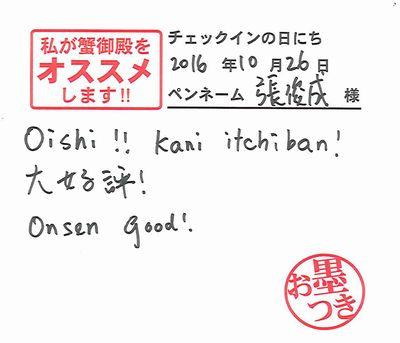 私が蟹御殿を
オススメ
します!!
チェックインの日にち
2016 年 10 月 26 日
ペンネーム 張俊成 様
Oishi!! kani itchiban!
大好評!
Onsen good!
お墨
つき